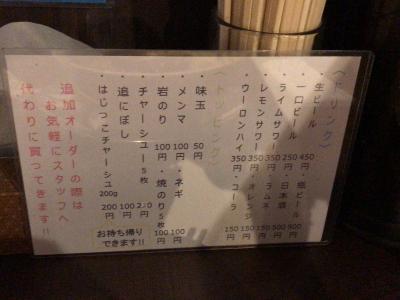 〈ドリンク〉
・生ビール 450円
・一口ビール 250円
・ライムサワー 350円
・レモンサワー 350円
・ウーロンハイ 350円
・瓶ビール 500円
・日本酒 500円
・ラムネ 150円
・オレンジ 150円
・コーラ 150円
〈トッピング〉
・味玉 50円
・メンマ 100円
・岩のり 100円
・チャーシュー5枚 200円
・追にぼし 100円
・はじっこチャーシュ 200g 200円
・ネギ 100円
・焼のり5枚 100円
お持ち帰りできます!!
追加オーダーの際は
お気軽にスタッフへ
代わりに買ってきます!!